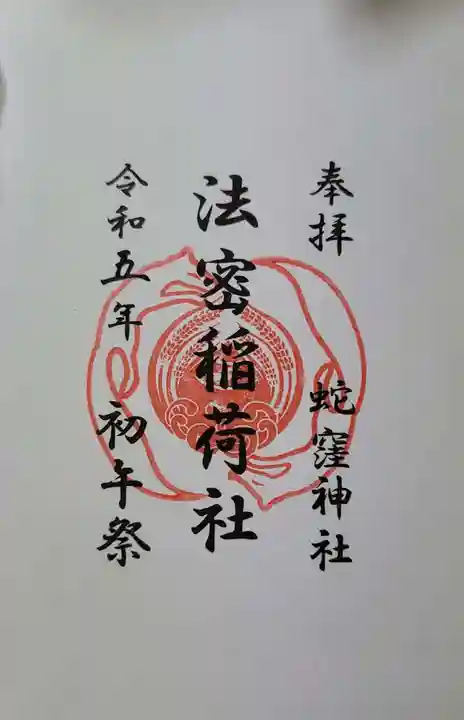 奉拝
蛇窪神社
法密稲荷社
令和五年
初午祭